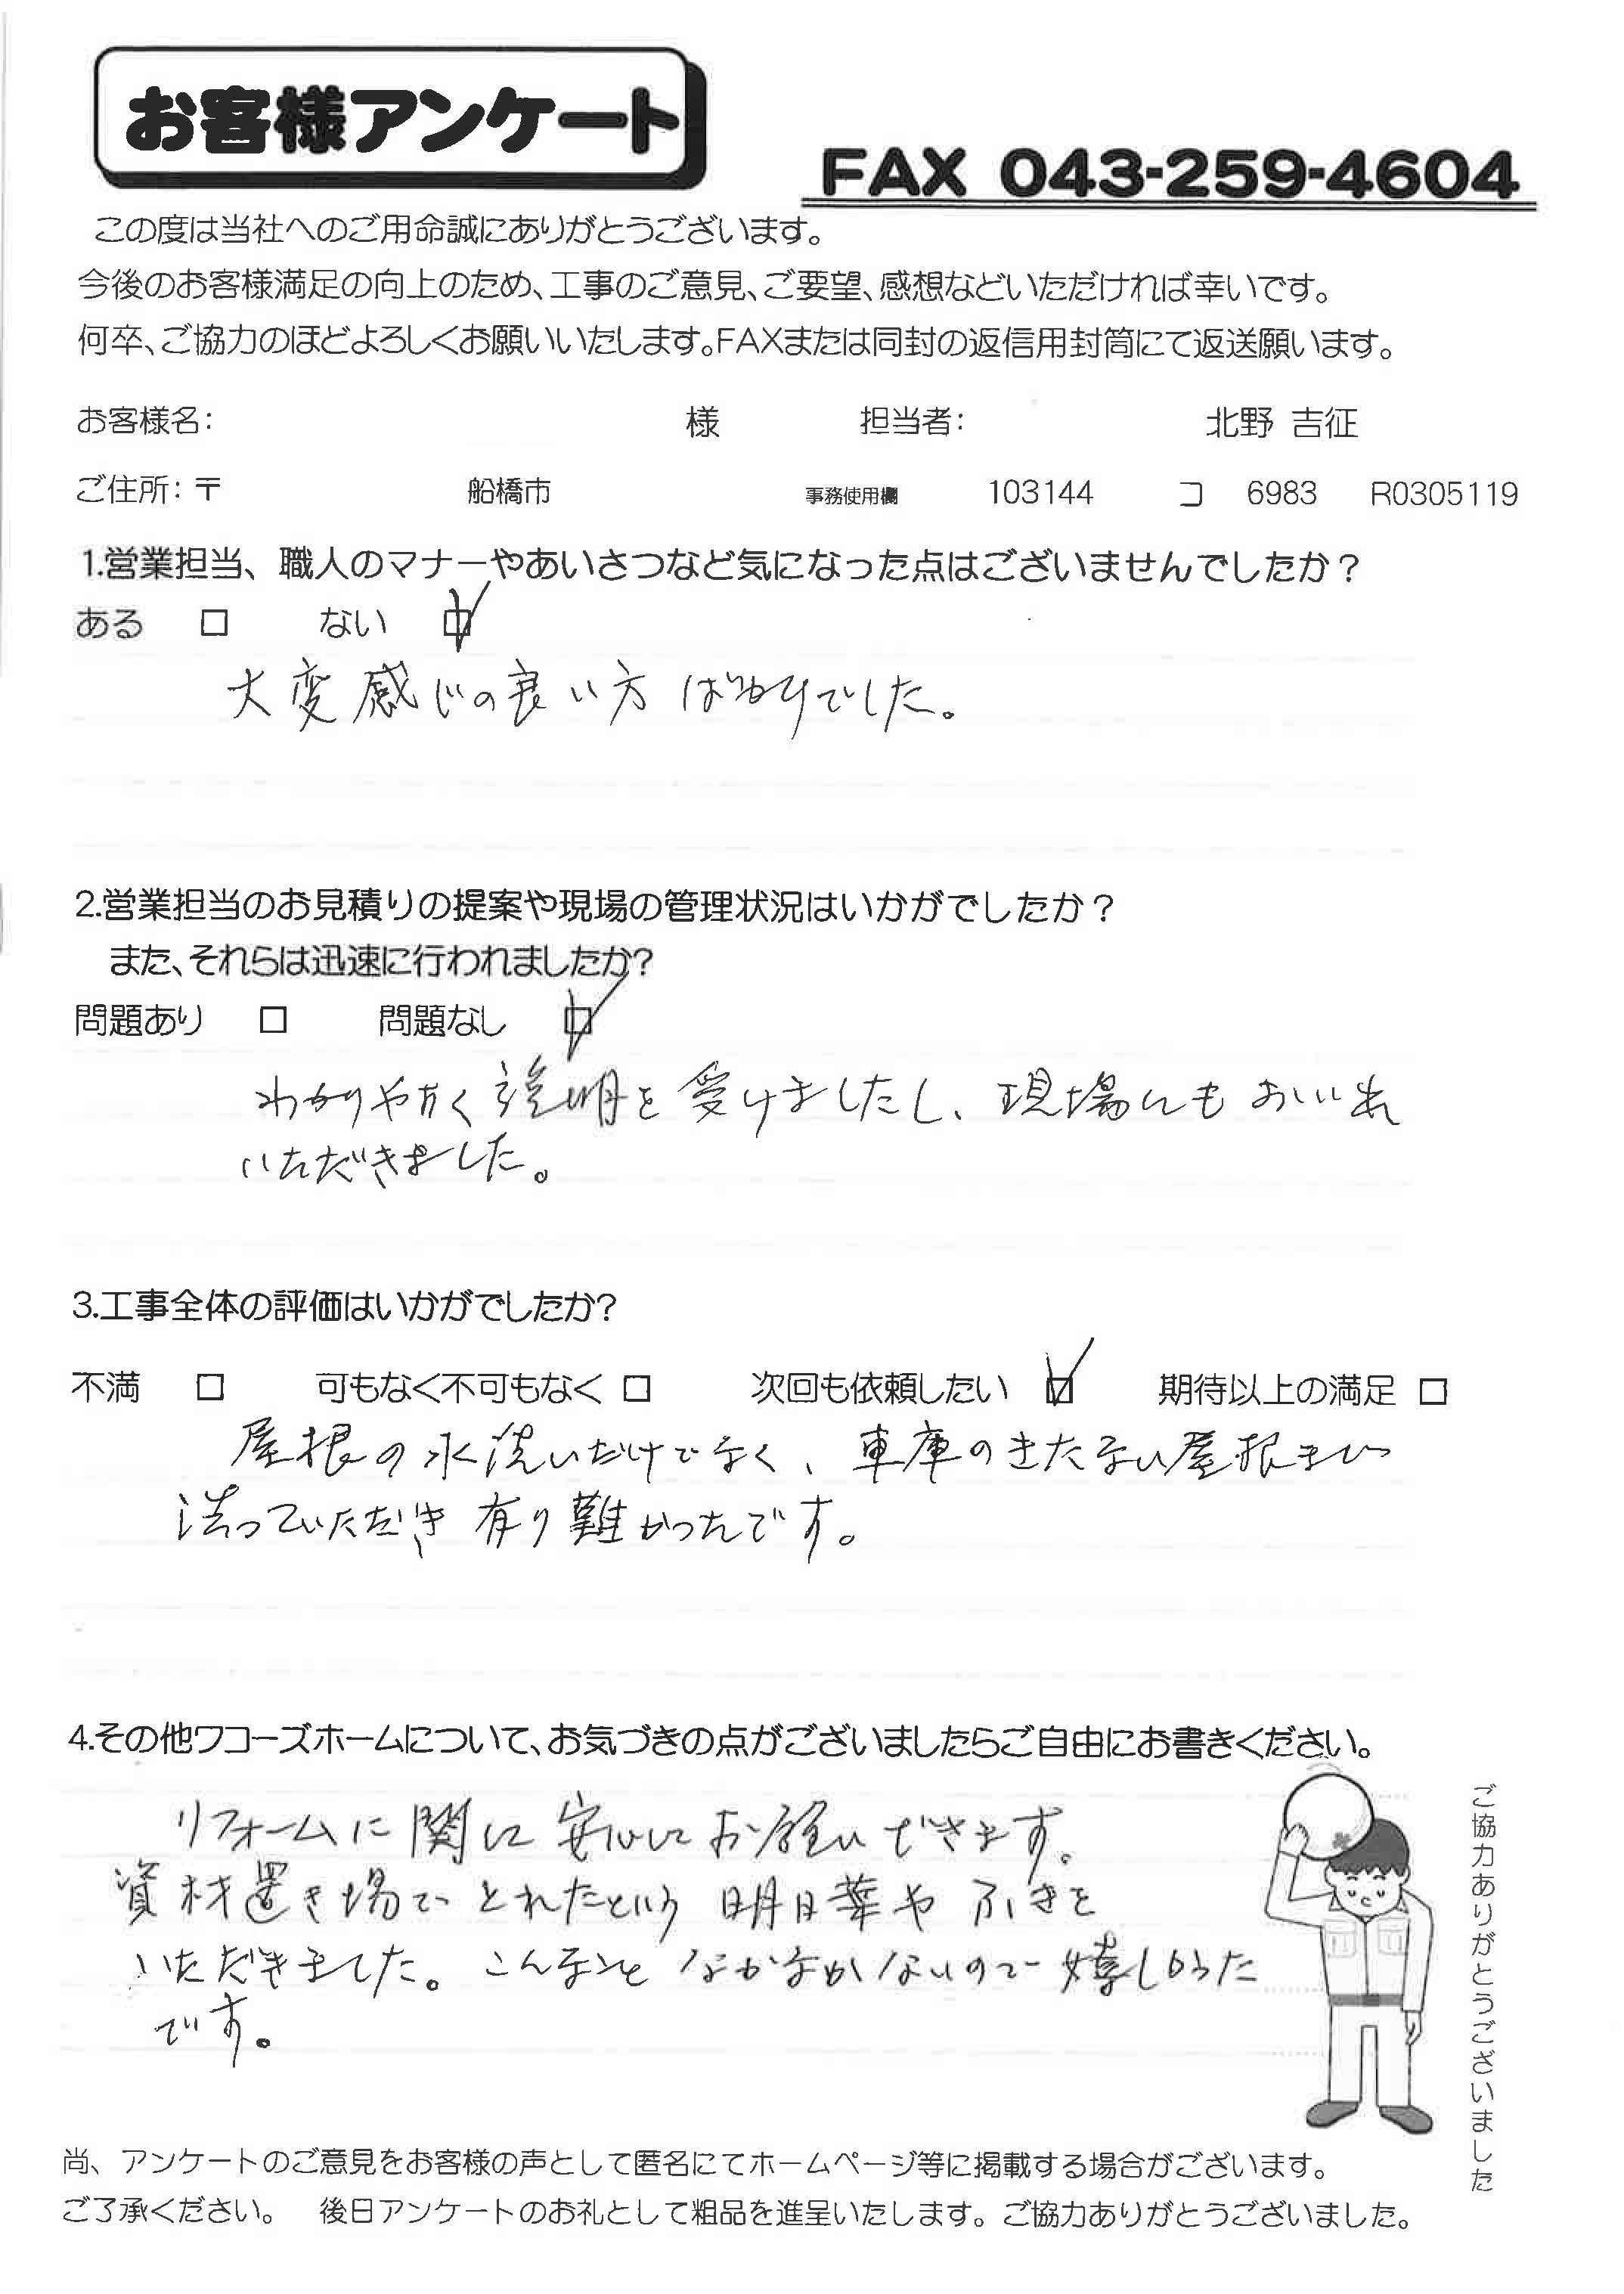 お客様アンケート
FAX 043-259-4604
この度は当社へのご用命誠にありがとうございます。
今後のお客様満足の向上のため、工事のご意見、ご要望、感想などいただければ幸いです。
何卒、ご協力のほどよろしくお願いいたします。FAXまたは同封の返信用封筒にて返送願います。
お客様名: 様 担当者: 北野 吉征
ご住所:〒 船橋市 事務使用欄 103144 コ 6983 R0305119
1.営業担当、職人のマナーやあいさつなど気になった点はございませんでしたか?
ある □ ない ☑
大変感じの良い方ばかりでした。
2.営業担当のお見積りの提案や現場の管理状況はいかがでしたか?
また、それらは迅速に行われましたか?
問題あり □ 問題なし ☑
説明を受けましたし、現場にも
いただきました。
3.工事全体の評価はいかがでしたか?
不満 □ 可もなく不可もなく □ 次回も依頼したい ☑ 期待以上の満足 □
屋根の水洗いだけでなく、車庫のきたない屋根まで
洗っていただき有り難かったです。
4.その他ワコーズホームについて、お気づきの点がございましたらご自由にお書きください。
リフォームに関して安心してお願いできます。
資材置き場でとれたという明日葉やふきを
いただきました。こんなことなかなかないので嬉しかった
です。
ご協力ありがとうございました
尚、アンケートのご意見をお客様の声として匿名にてホームページ等に掲載する場合がございます。
ご了承ください。 後日アンケートのお礼として粗品を進呈いたします。ご協力ありがとうございました。